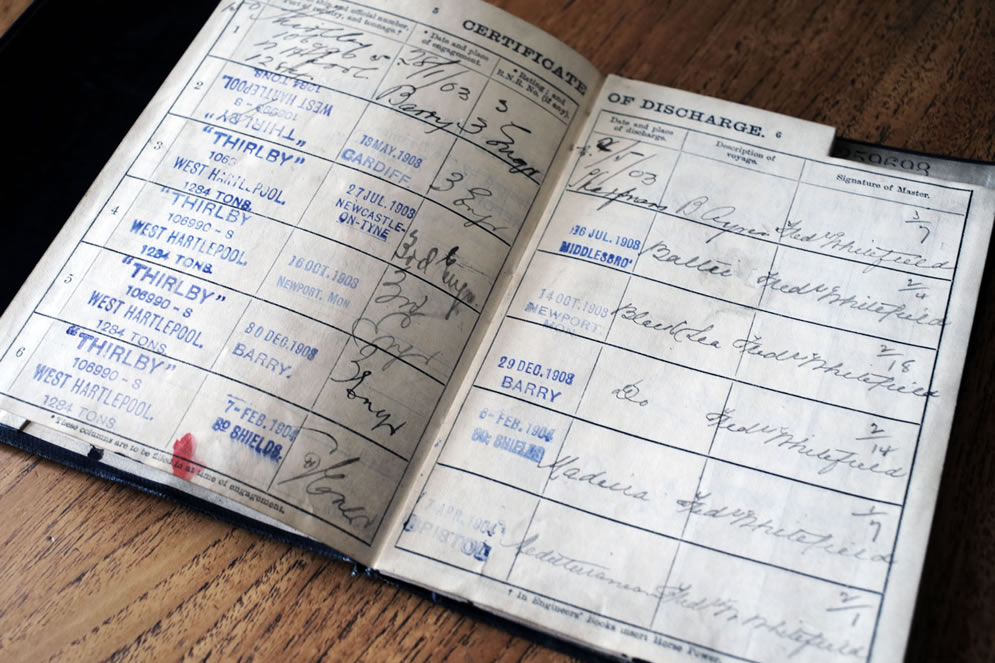 5
CERTIFICATE
ship and official number,
Port of registry, and tonnage.†
* Date and place
of engagement.
* Rating; and
R.N.R. No. (if any).
1
28/1/03
Barry
3
3 Engr
2
"THIRLBY"
WEST HARTLEPOOL
1284 TONS
18 MAY. 1903
CARDIFF
3 Engr
3
"THIRLBY"
WEST HARTLEPOOL.
1284 TONS.
27 JUL. 1903
NEWCASTLE-
ON-TYNE
3rd Engr.
4
"THIRLBY
106990 - S
WEST HARTLEPOOL.
1284 TONS.
16 OCT. 1903
NEWPORT. MON
3rd
Engr
5
"THIRLBY"
106990 - S
WEST HARTLEPOOL.
1284 TONS.
30 DEC. 1903
BARRY.
3 Engr
6
"THIRLBY"
106990 - S
WEST HARTLEPOOL.
1284 TONS.
7- FEB. 1904
So SHIELDS.
* These columns are to be filled in at time of engagement.
OF DISCHARGE. 6
Date and place
of discharge.
Description of
voyage.
Signature of Master.
/5/03
B Ayres
Fredk Whitefield
3/7
16 JUL. 1903
MIDDLESBRO'
Baltic
Fredk Whitefield
2/4
14 OCT. 1903
NEWPORT.
MON
Black Sea
Fredk Whitefield
2/18
29 DEC. 1903
BARRY
Do
Fredk Whitefield
2/14
6- FEB. 1904
So SHIELDS
Madeira
Fredk Whitefield
1/7
APR. 1904
BRISTOL
Mediterranean
Fredk Whitefield
2/1
† In Engineers' Books insert Horse Power.